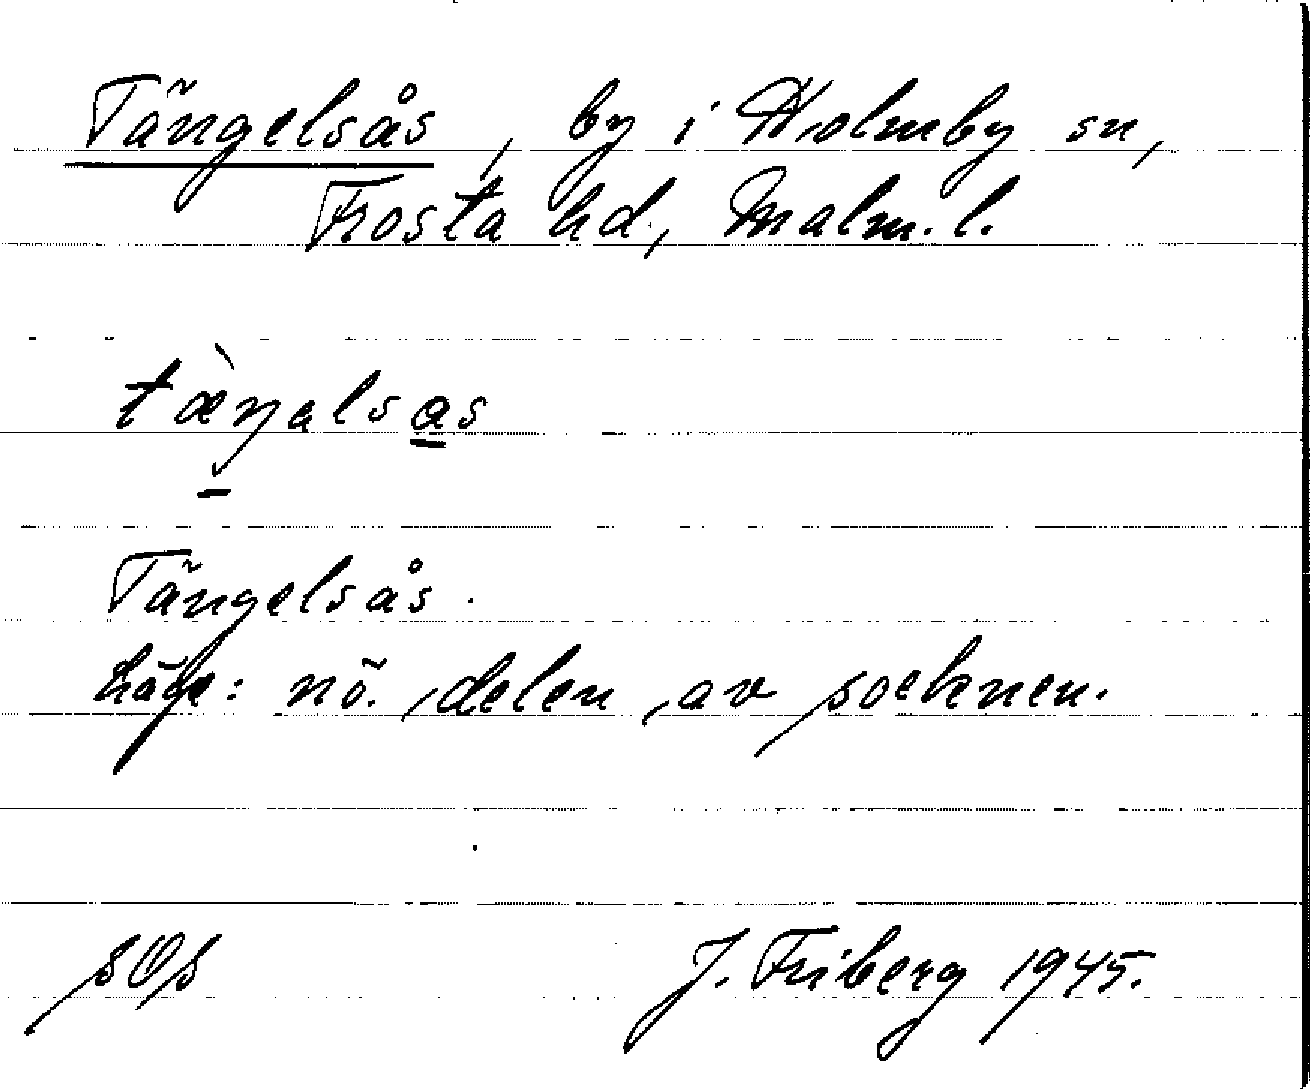 Tängelsås, by i Holmby sn,
Frosta hd, Malm. l.
tæ̀ŋalsas
Tängelsås.
läge: nö. delen av socknen.
sOs J. Friberg 1945.